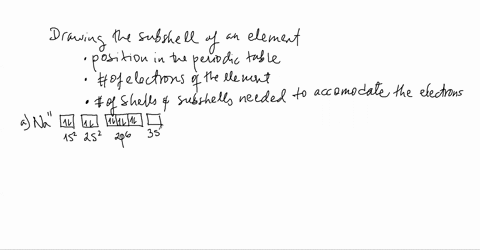 Drawing the subshell of an element
• position in the periodic table
• # of electrons of the element
• # of shells & subshells needed to accomodate the electrons
a) Na¹¹ ⥮ ⥮ ⥮⥮⥮
1s² 2s² 2p6 3s